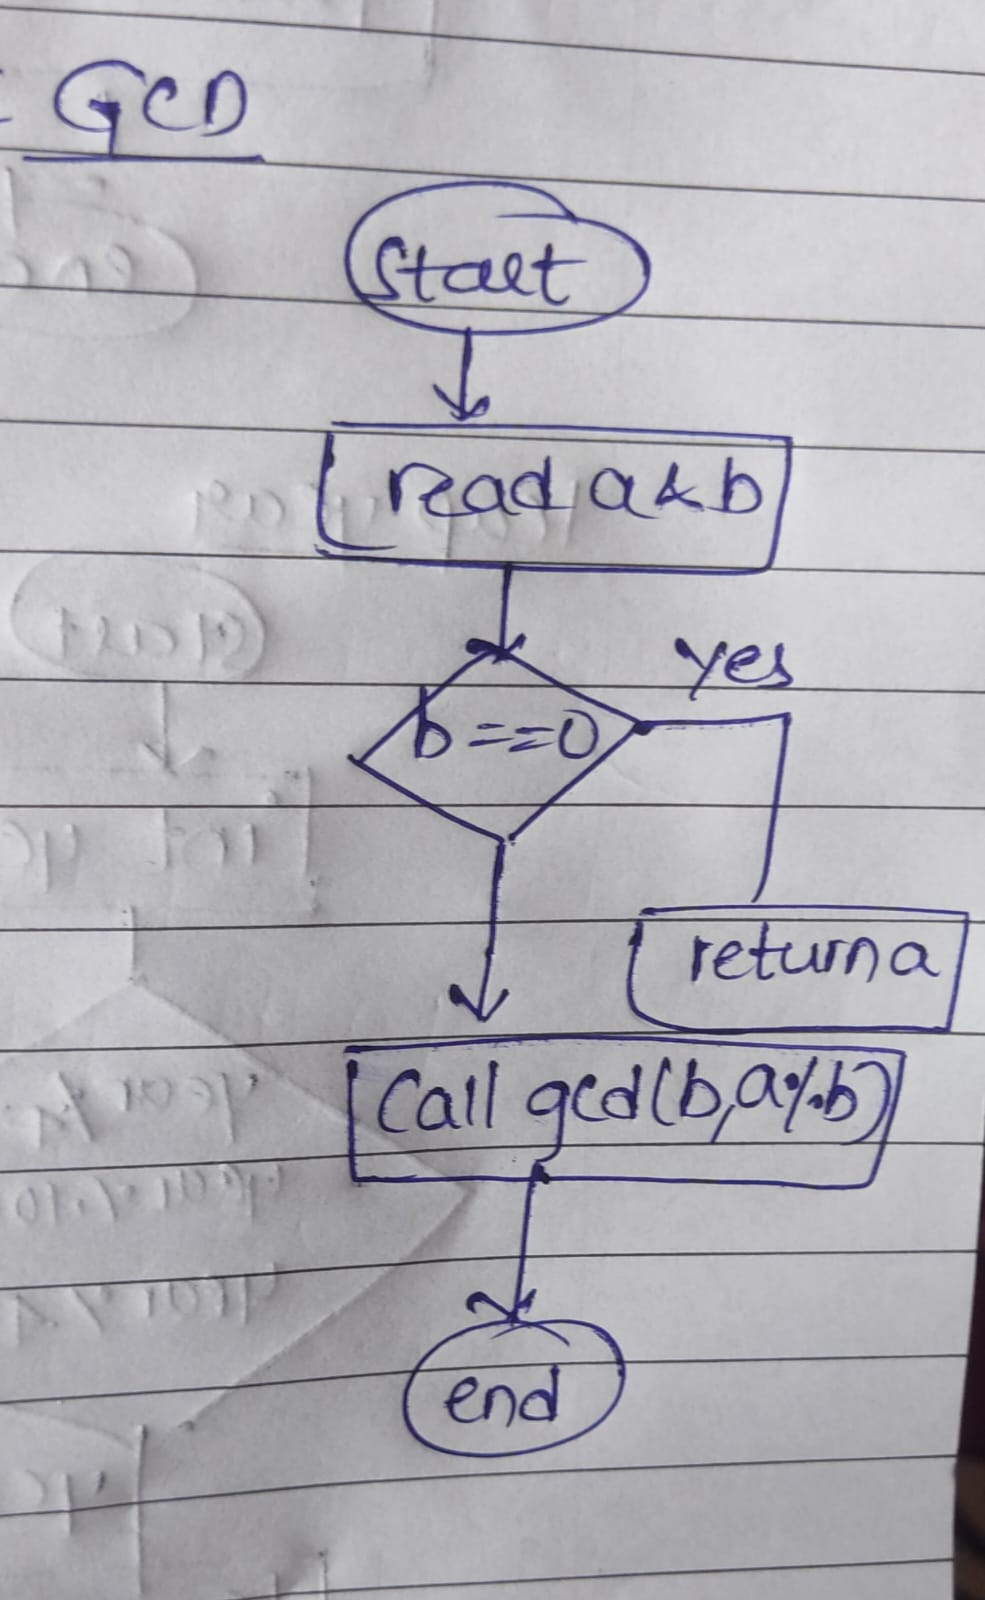 GCD
Start
read a & b
b==0
yes
return a
Call gcd(b,a%b)
end